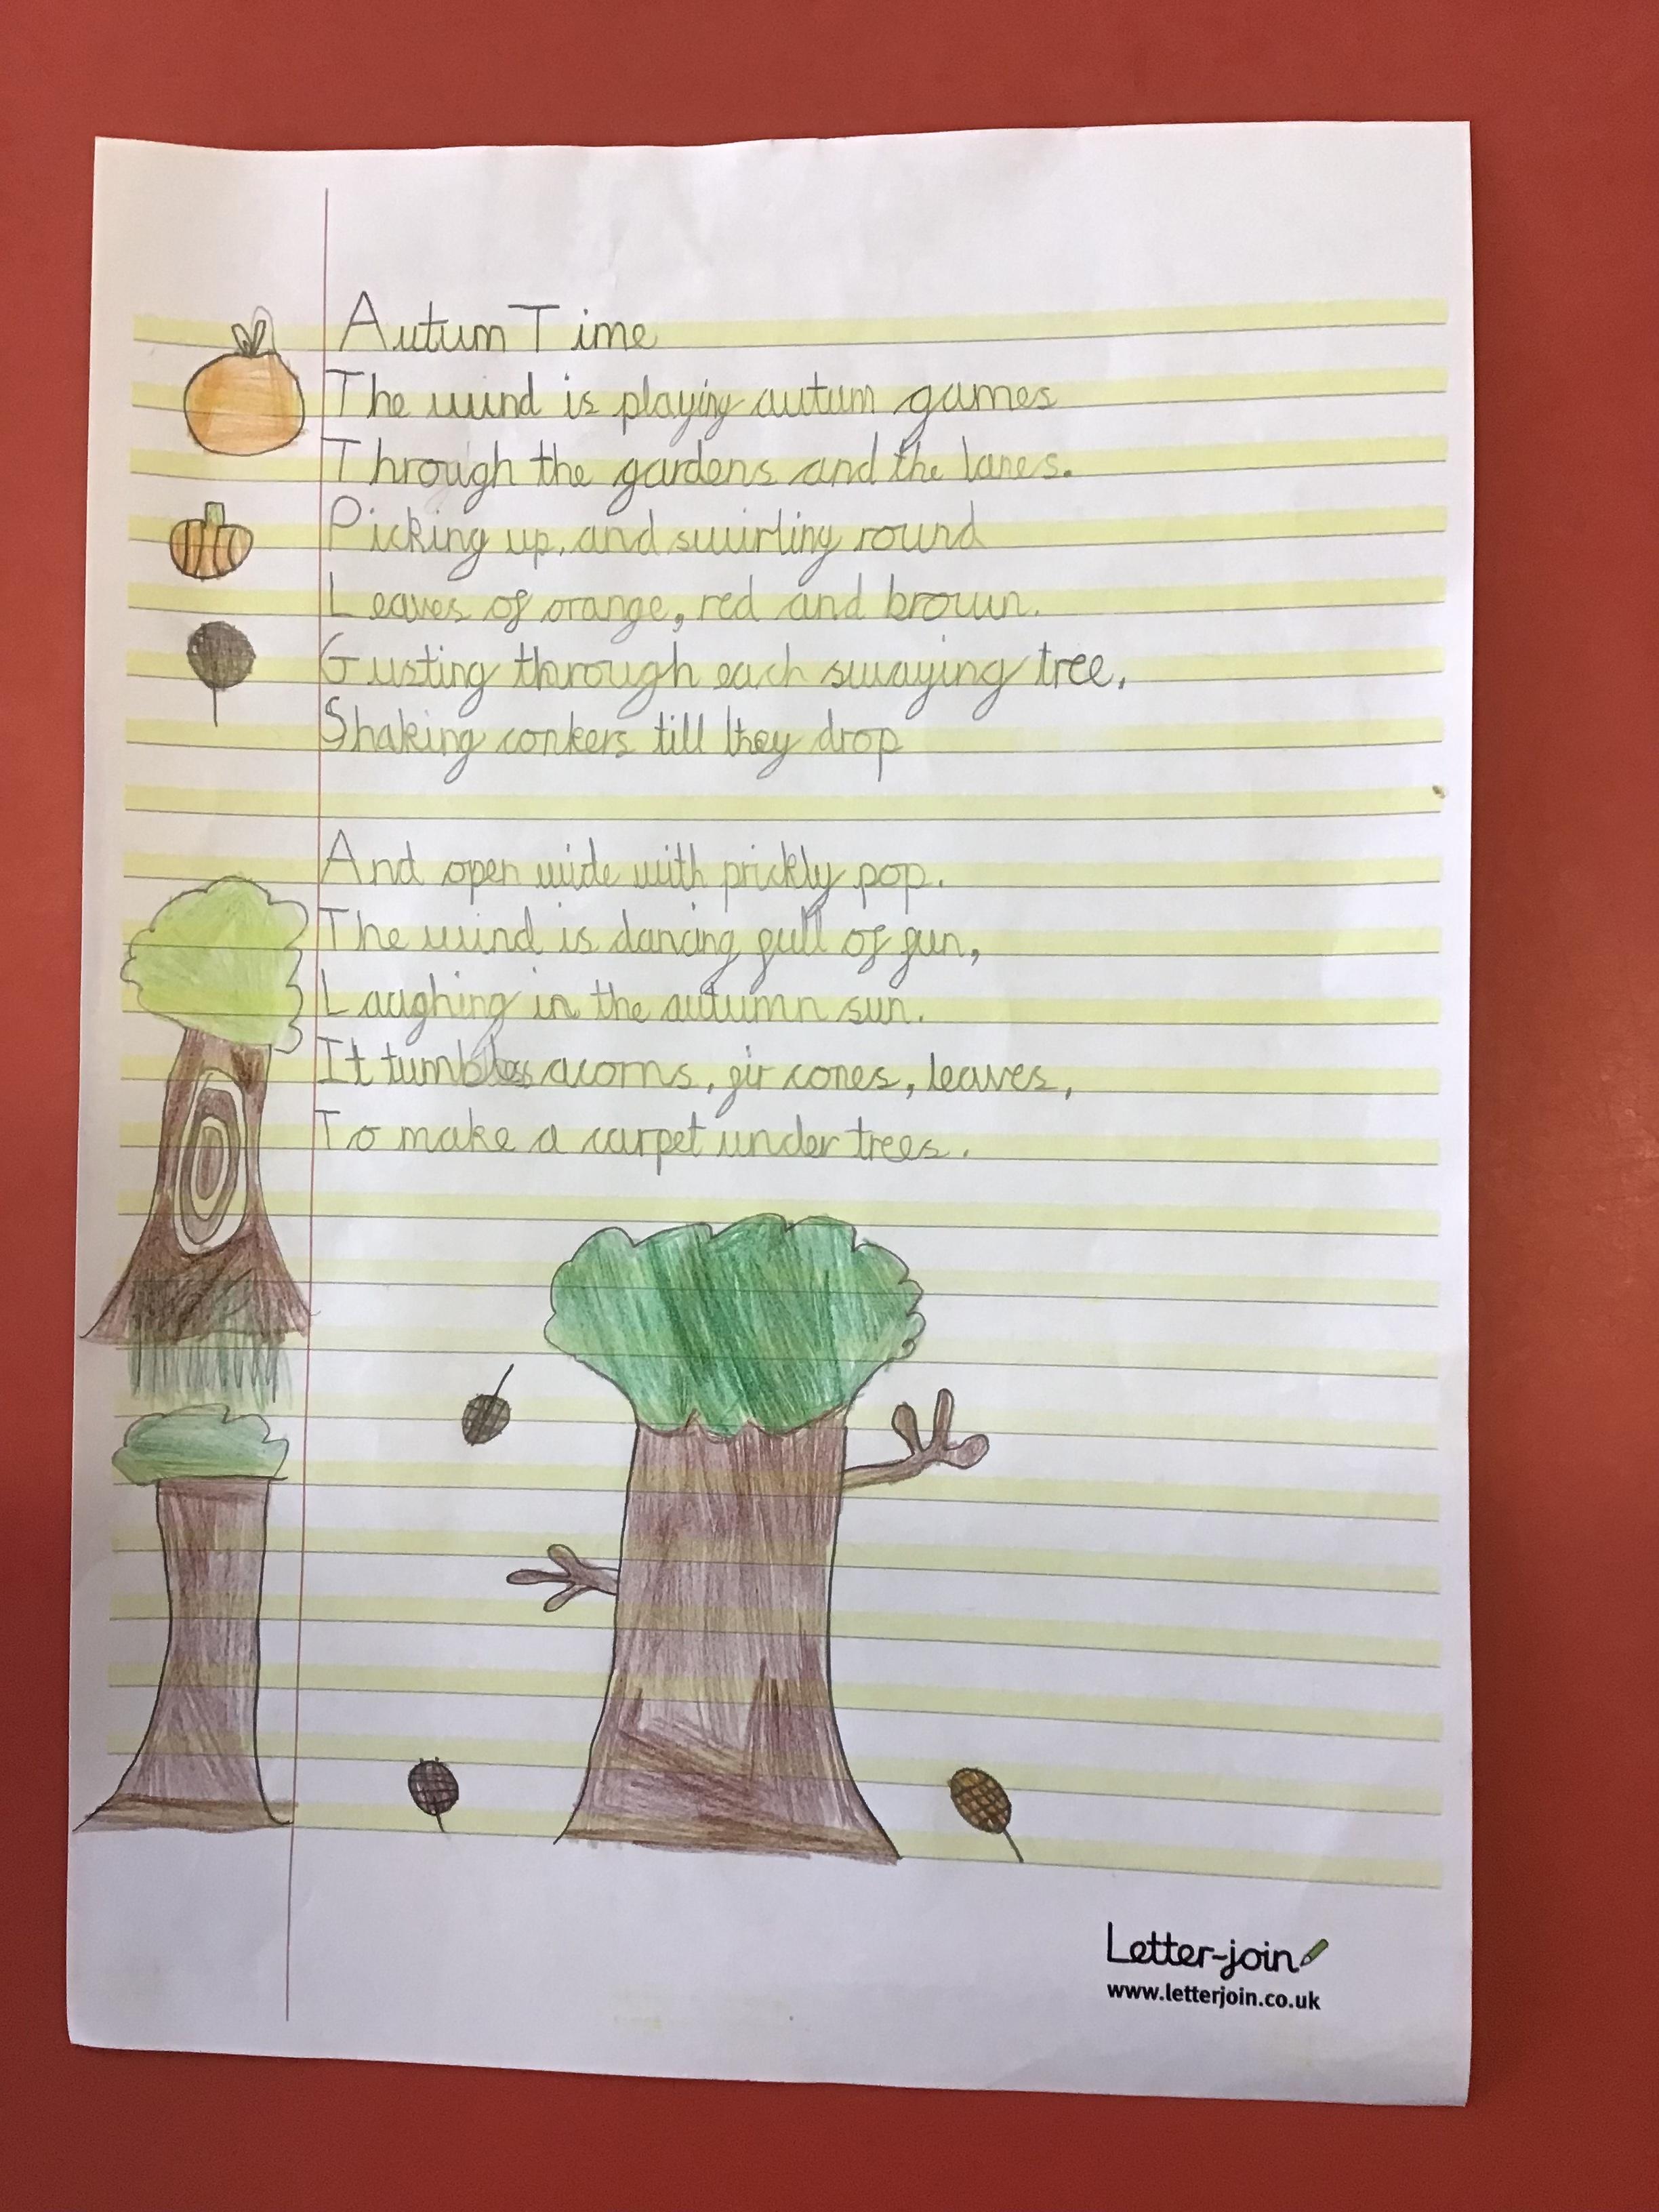 Autum Time
The wind is playing autum games
Through the gardens and the lanes.
Picking up, and swirling round
Leaves of orange, red and brown.
Gusting through each swaying tree,
Shaking conkers till they drop
And open wide with prickly pop.
The wind is dancing full of fun,
Laughing in the autumn sun.
It tumbles acorns, fir cones, leaves,
To make a carpet under trees.
Letter-join
www.letterjoin.co.uk